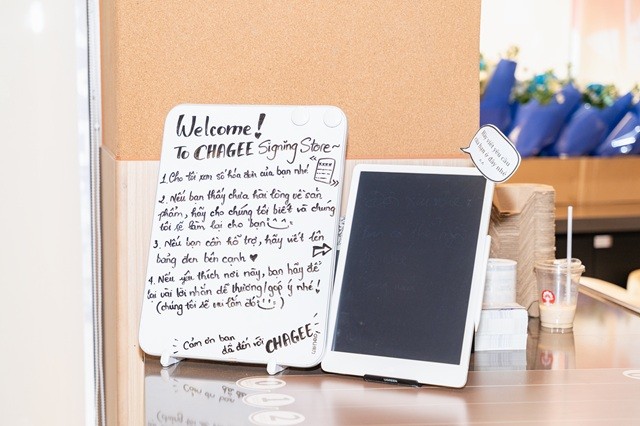 Welcome!
To CHAGEE Signing Store~
1. Cho tôi xem số hóa đơn của bạn nhé
2. Nếu bạn thấy chưa hài lòng về sản
phẩm, hãy cho chúng tôi biết và chúng
tôi sẽ làm lại cho bạn
3. Nếu bạn cần hỗ trợ, hãy viết lên
bảng đen bên cạnh ♥
4. Nếu yêu thích nơi này, bạn hãy để
lại vài lời nhắn dễ thương/góp ý nhé!
(chúng tôi sẽ vui lắm đó)
Cảm ơn bạn
đã đến với CHAGEE
Hãy viết yêu cầu
của bạn ở đây nhé